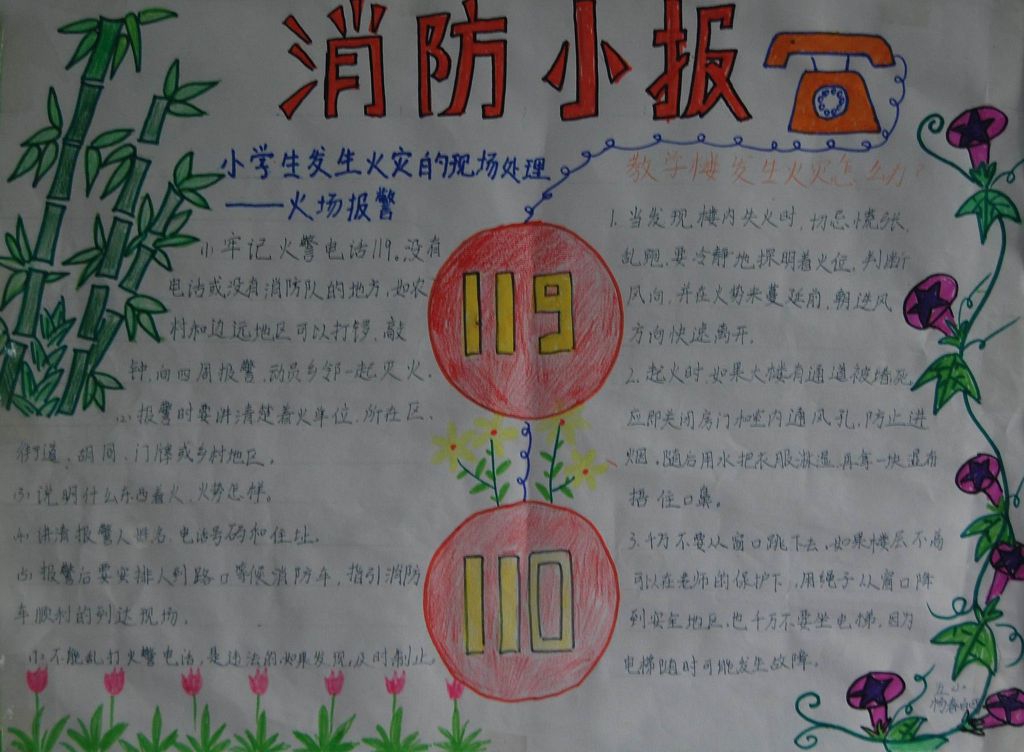 消防小报
小学生发生火灾的现场处理
——火场报警
(1)牢记火警电话119。没有
电话或没有消防队的地方，如农
村和边远地区可以打锣、敲
钟，向四周报警，动员乡邻一起灭火。
(2)报警时要讲清楚着火单位、所在区、
街道、胡同、门牌或乡村地区。
(3)说明什么东西着火，火势怎样。
(4)讲清报警人姓名、电话号码和住址。
(5)报警后要安排人到路口等候消防车，指引消防
车顺利的到达现场。
(6)不能乱打火警电话，是违法的如果发现，及时制止
119
110
教学楼发生火灾怎么办？
1.当发现楼内失火时，切忌慌张，
乱跑，要冷静地探明着火位，判断
风向，并在火势未蔓延前，朝逆风
方向快速离开。
2.起火时，如果大楼有通道被堵死，
应即关闭房门和室内通风孔，防止进
烟。随后用水把衣服淋湿，再拿一块湿布
捂住口鼻。
3.千万不要从窗口跳下去，如果楼层不高
可以在老师的保护下，用绳子从窗口降
到安全地区，也千万不要坐电梯，因为
电梯随时可能发生故障。